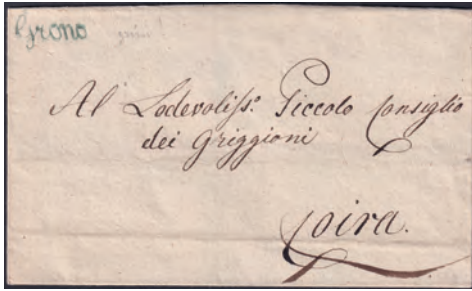 Grono
Al Lodevoliss.º Piccolo Consiglio
dei Griggioni
Coira.